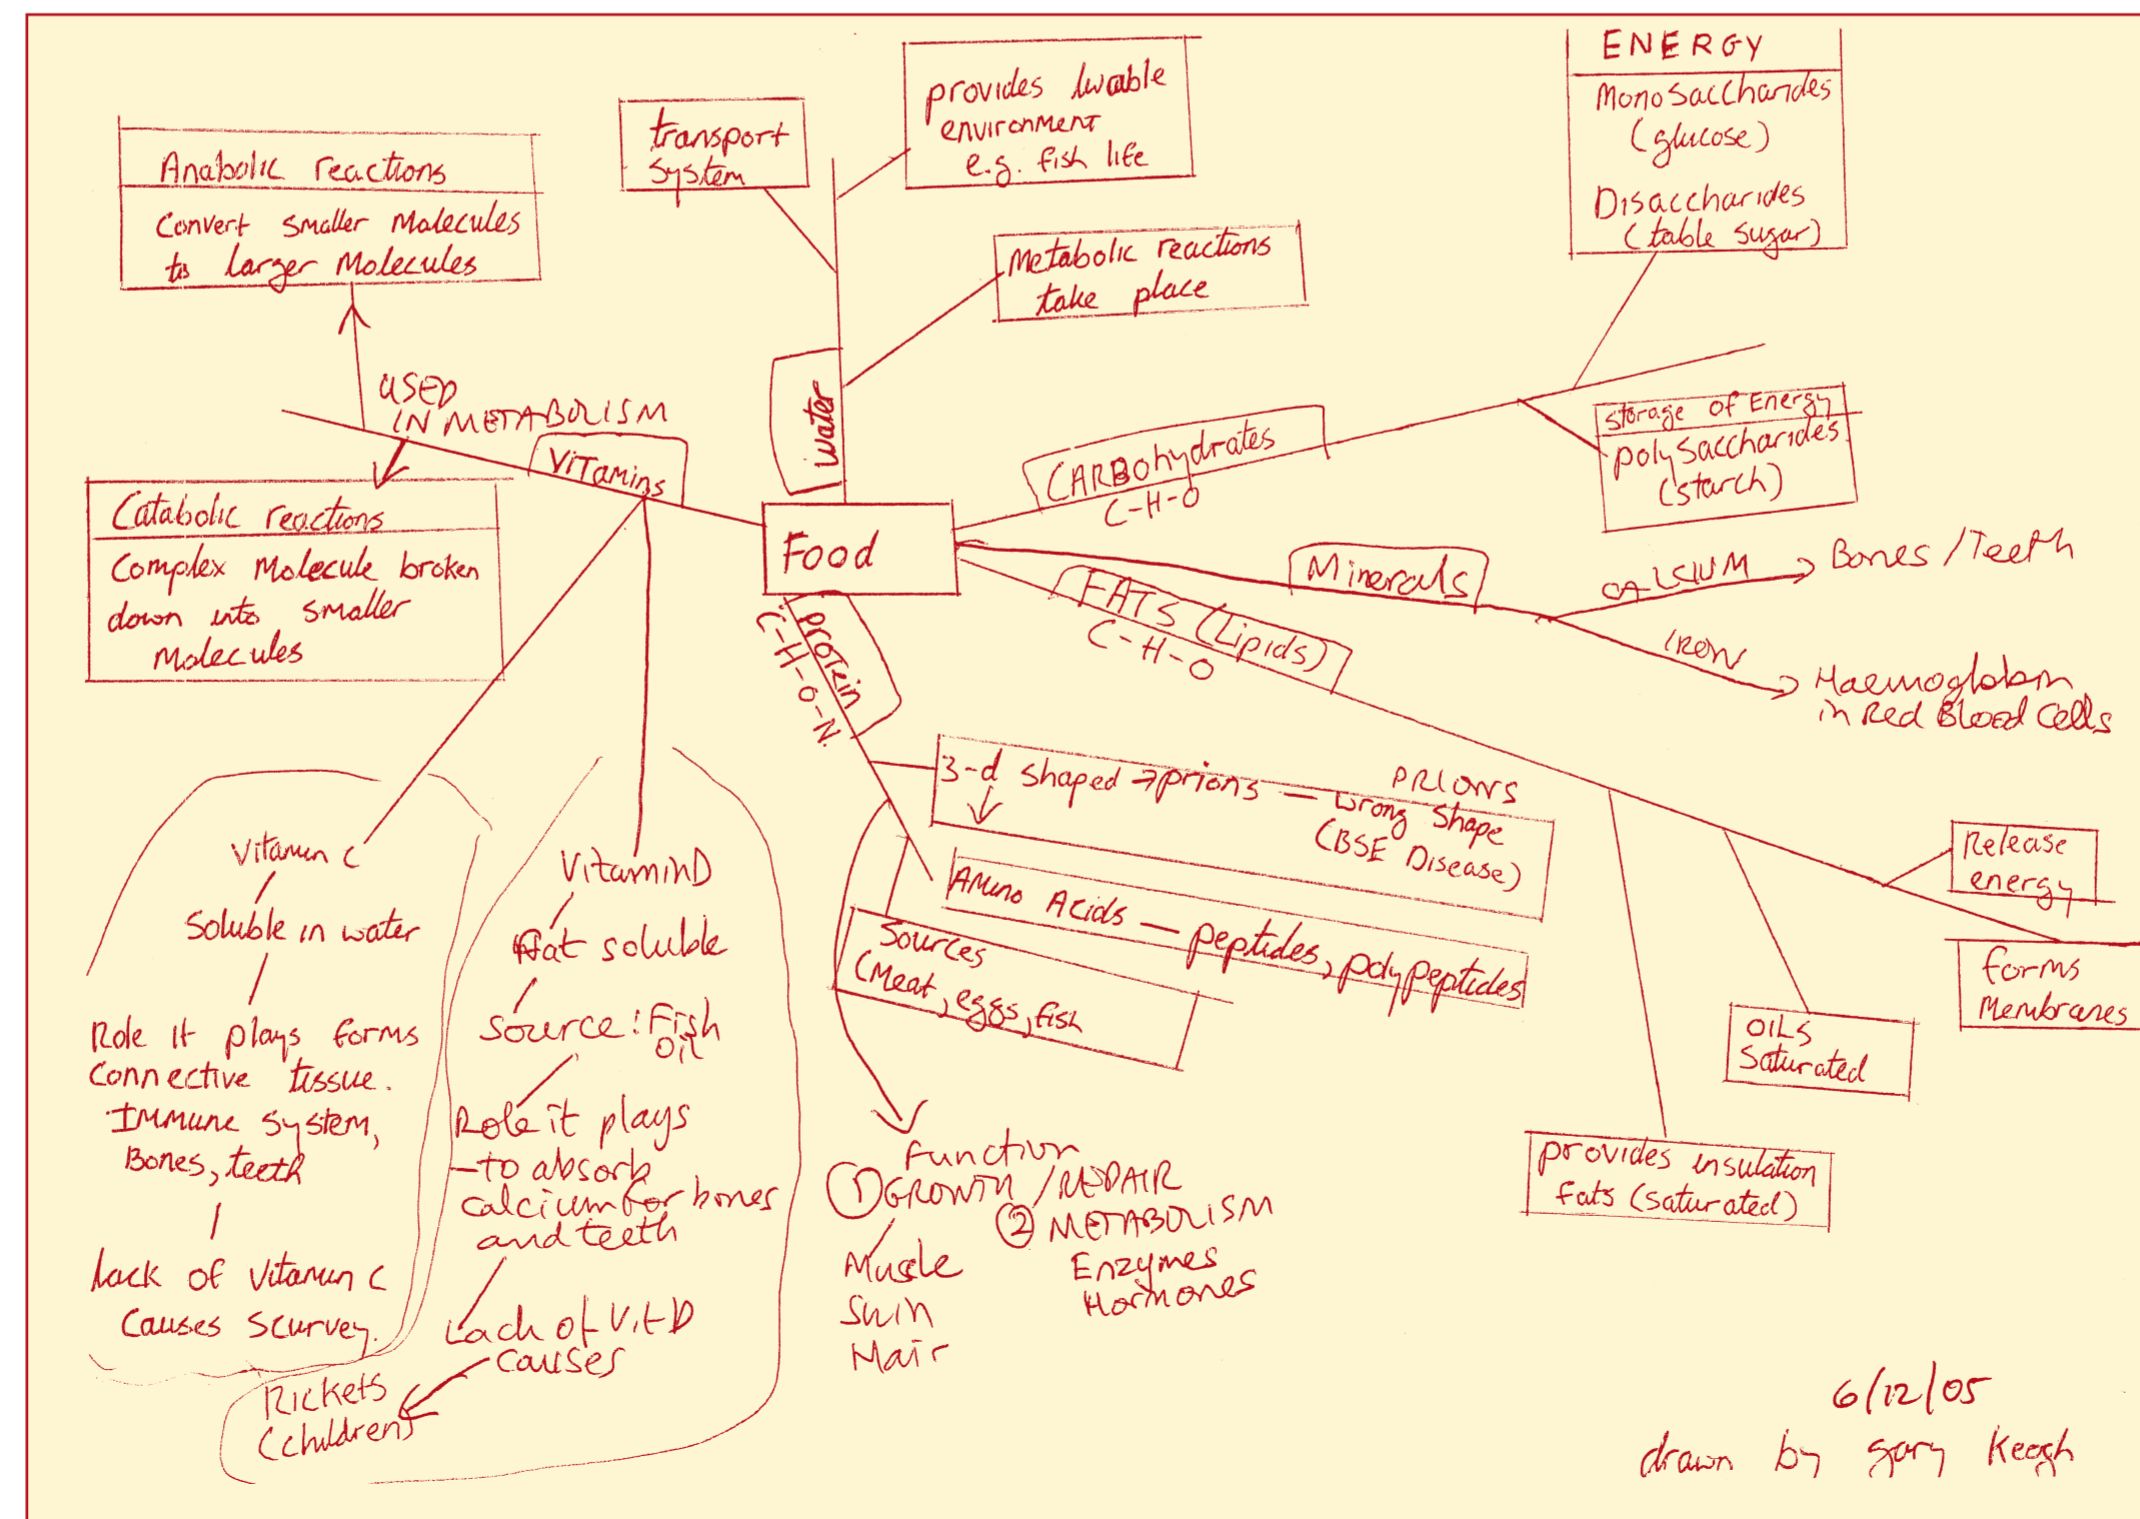 Anabolic reactions
Convert smaller Molecules
to larger Molecules
transport
system
provides livable
environment
e.g. fish life
Metabolic reactions
take place
ENERGY
Monosaccharides
(glucose)
Disaccharides
(table sugar)
USED
IN METABOLISM
Vitamins
water
CARBohydrates
C-H-O
Storage of Energy
polysaccharides
(starch)
Catabolic reactions
Complex Molecule broken
down into smaller
Molecules
Food
Minerals
CALCIUM
Bones/Teeth
IRON
Haemoglobin
in Red Blood Cells
FATS (Lipids)
C-H-O
Protein
C-H-O-N.
3-d shaped → prions — wrong shape
PRIONS
(BSE Disease)
Amino Acids — peptides, polypeptides
Sources
(Meat, eggs, fish
Release
energy
forms
Membranes
OILS
Saturated
provides insulation
fats (saturated)
Vitamin C
Soluble in water
Role it plays forms
Connective tissue.
Immune system,
Bones, teeth
lack of vitamin C
Causes scurvey.
Vitamin D
fat soluble
Source: Fish
Oil
Role it plays
-to absorb
calcium for bones
and teeth
Lack of Vit D
causes
Rickets
(children)
Function
① GROWTH / REPAIR
Muscle
Skin
Hair
② METABOLISM
Enzymes
Hormones
6/12/05
drawn by gary Keogh